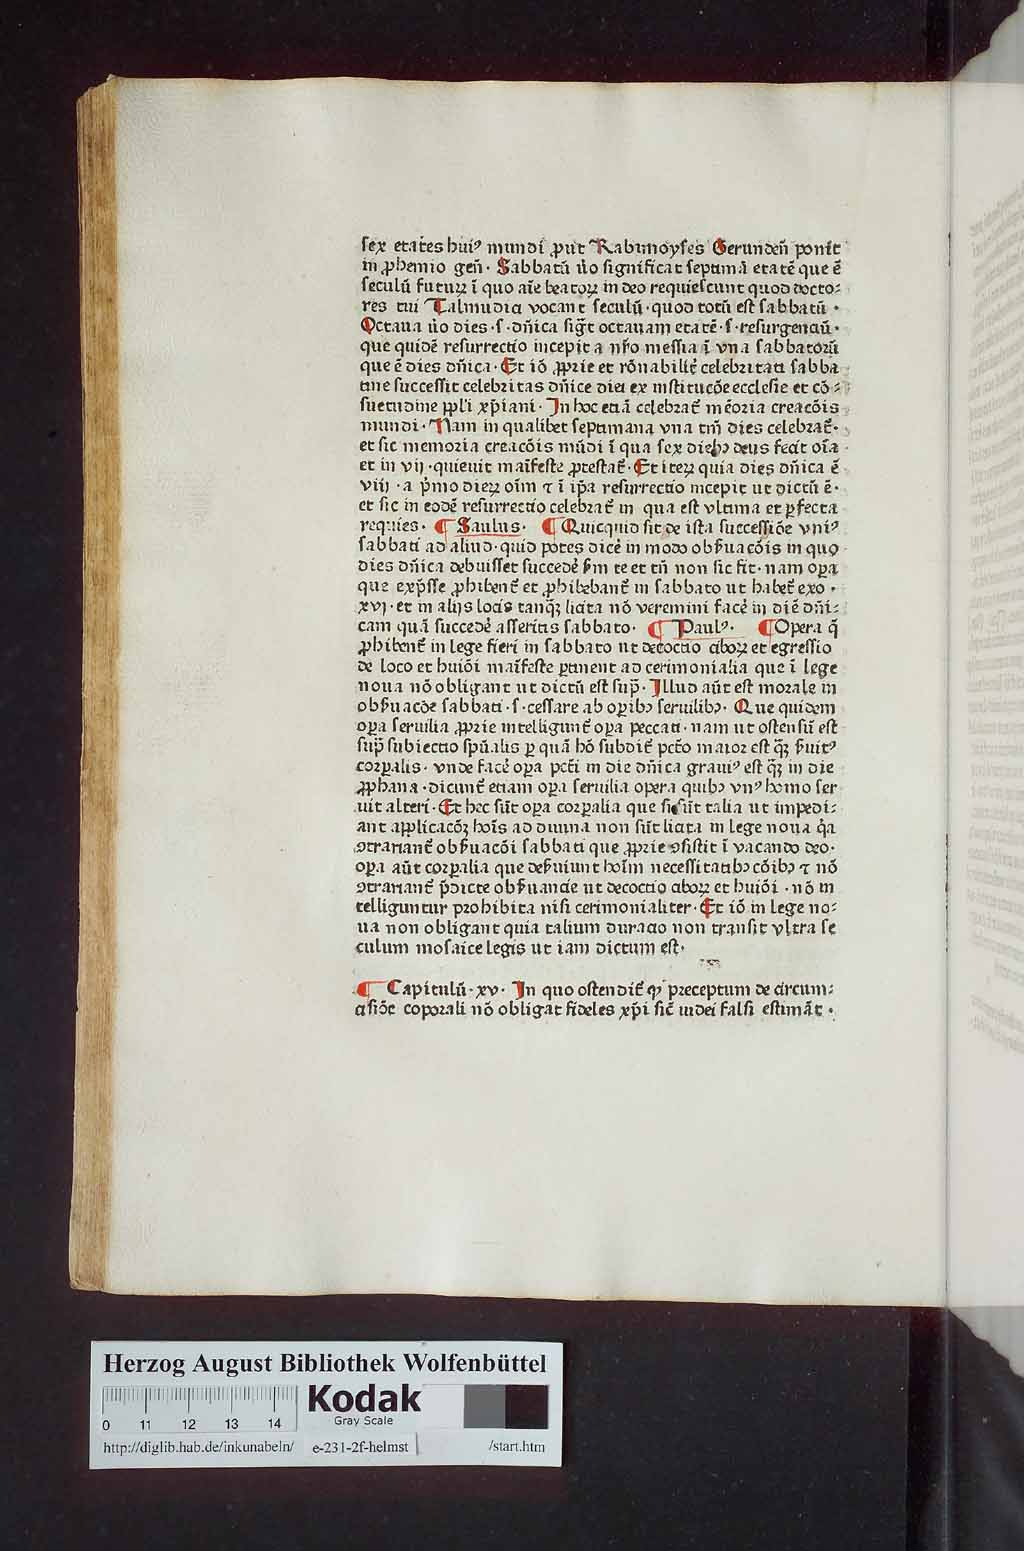 sex etates huiꝰ mundi ꝓut Rabimoyses Gerundeñ ponit
in ꝓhemio geñ· Sabbatū ṽo significat septimā etatē que ē
seculū futuꝝ ī quo aīe beatoꝝ in deo requiescunt quod docto⸗
res tui Talmudia vocant seculū· quod totū est sabbatū·
Octaua ṽo dies· s· dñica sigt̄ octauam etatē· s· resurgenciū·
que quidē resurrectio incepit a nr̄o messia ī vna sabbatorū
que ē dies dñica· Et iō ꝓprie et rōnabilit̄ celebritati sabba
tine successit celebritas dñice diei ex institucōe ecclesie et cō⸗
suetudine ppl'i xp̄iani· In hoc etiā celebrat̄ mēoria creacōis
mundi· Nam in qualibet septimana vna tm̄ dies celebrat̄·
et sic memoria creacōis mūdi ī qua sex diebꝫ deus fecit oīa
et in vij· quieuit maīfeste ꝓtestat̄· Et iteꝝ quia dies dñica ē
viij· a p̄mo dieꝝ oīm ⁊ ī ip̄a resurrectio incepit ut dictū ē·
et sic in eodē resurrectio celebrat̄ in qua est vltima et ꝑfecta
requies· ¶ Saulus· ¶ Quicquid sit de ista successiōe vniꝰ
sabbati ad aliud· quid potes dicē in modo obẜuacōis in quo
dies dñica debuisset succedē ẜm te et tñ non sic fit· nam oꝑa
que exp̄sse ꝓhibent̄ et ꝓhibebant̄ in sabbato ut habet̄ exo·
xvj· et in alijs locis tanqꝫ licita nō veremini facē in diē dñi⸗
cam quā succedē asseritis sabbato· ¶ Paulꝰ· ¶ Opera q̄
ꝓhibent̄ in lege fieri in sabbato ut decoctio ciboꝝ et egressio
de loco et huiōi maīfeste ꝑtinent ad cerimonialia que ī lege
noua nō obligant ut dictū est sup̄· Illud aūt est morale in
obẜuacōe sabbati· s· cessare ab oꝑibꝫ seruilibꝫ· Que quidem
oꝑa seruilia ꝓprie intelligunt̄ oꝑa peccati· nam ut ostensū est
sup̄ subiectio sp̄ualis ꝑ quā hō subdit̄ pct̄o maior est qꝫ ẜuitꝰ
corꝑalis· vnde facē oꝑa pct̄i in die dñica grauiꝰ est qꝫ in die
ꝓphana· dicunt̄ etiam oꝑa seruilia opera quibꝫ vnꝰ homo ser
uit alteri· Et hec sūt oꝑa corꝑalia que si sūt talia ut impedi⸗
ant applicacōꝫ hoīs ad diuina non sūt licita in lege noua q̇a
ꝯtrariant̄ obẜuacōi sabbati que ꝓprie ꝯsistit ī vacando deo·
oꝑa aūt corꝑalia que deẜuiunt hoīm necessitatibꝫ cōibꝫ ⁊ nō
ꝯtrariant̄ p̄dicte obẜuancie ut decoctio ciboꝝ et huiōi· nō in
telliguntur prohibita nisi cerimonialiter· Et iō in lege no⸗
ua non obligant quia talium duracio non transit vltra se
culum mosaice legis ut iam dictum est·
¶ Capitulū· xv· In quo ostendit̄ ꝙ preceptum de circum⸗
cisiōe coporali nō obligat fideles xp̄i sic̄ iudei falsi estimāt·
Herzog August Bibliothek Wolfenbüttel
0 11 12 13 14
Kodak
Gray Scale
http://diglib.hab.de/inkunabeln/ e-231-2f-helmst /start.htm